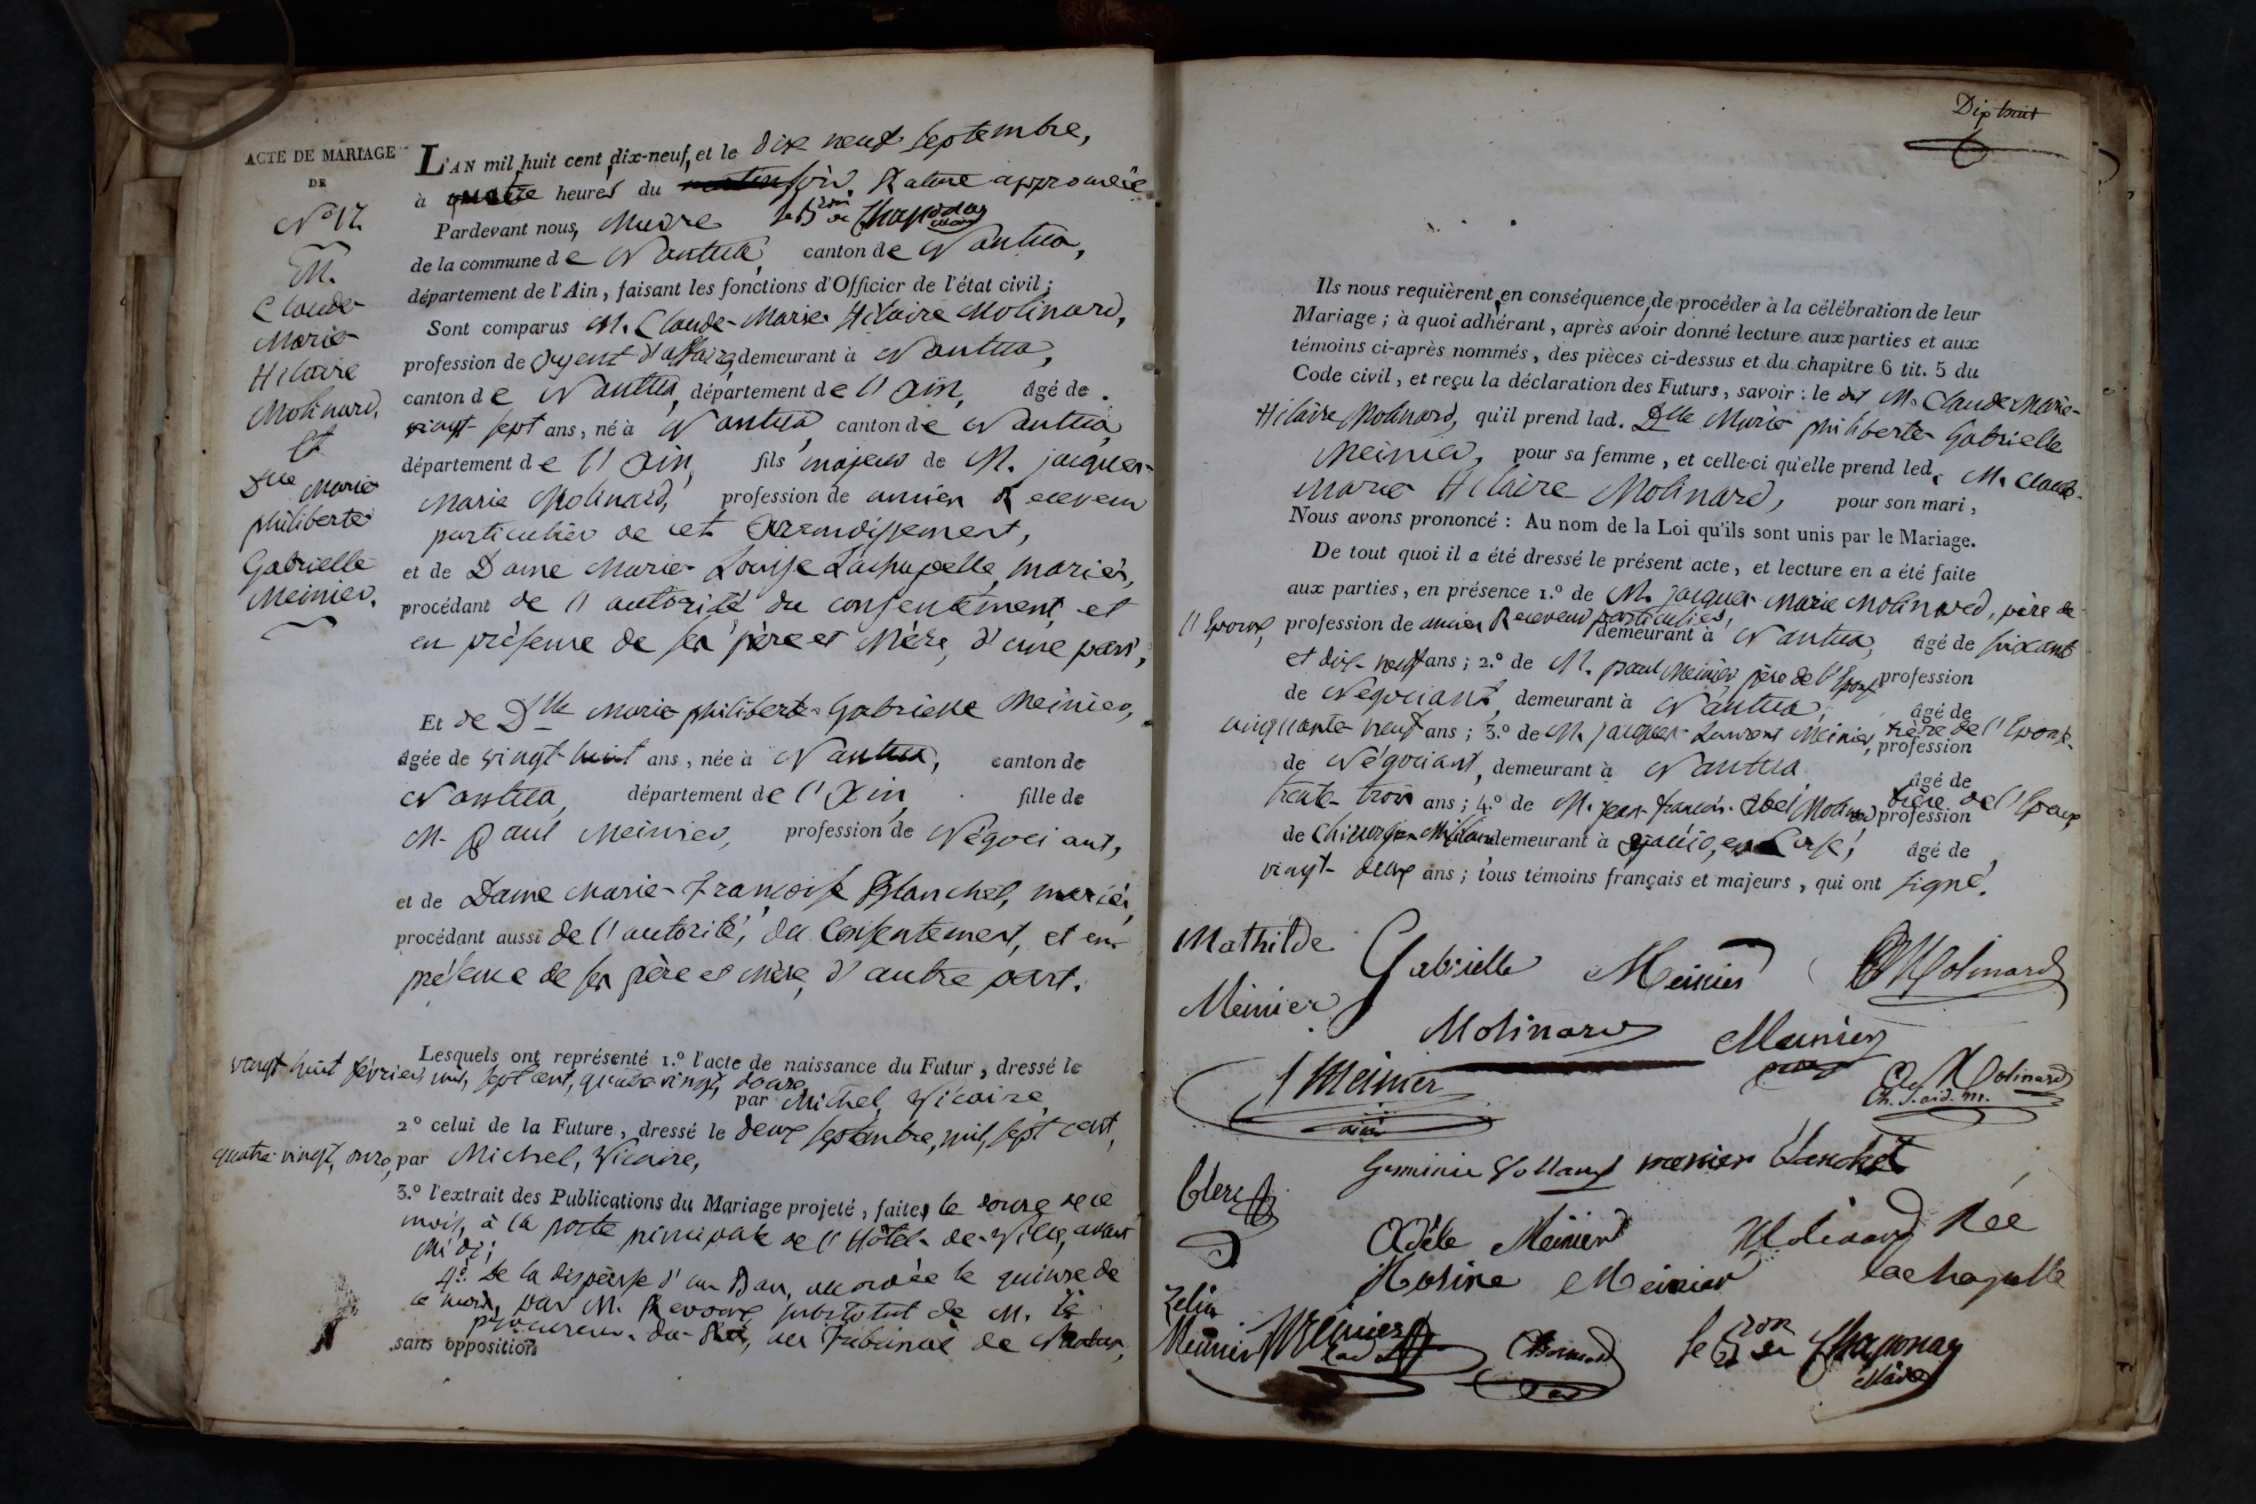 ACTE DE MARIAGE
DE
N° 17.
M.
Claude
Marie
Hilaire
Molinard,
et
Dlle Marie
philiberte
Gabrielle
Meinier.
L'AN mil huit cent dix-neuf, et le dix neuf septembre,
à quatre heures du matin soir. Rature approuvée
le Bron de Chaponay
Maire
Pardevant nous, Maire
de la commune de Nantua, canton de Nantua,
département de l'Ain, faisant les fonctions d'Officier de l'état civil;
Sont comparus M. Claude-Marie Hilaire Molinard,
profession de agent d'affaires, demeurant à Nantua,
canton de Nantua, département de l'Ain, âgé de
vingt-sept ans, né à Nantua, canton de Nantua,
département de l'Ain, fils majeur de M. jacques-
Marie Molinard, profession de ancien Receveur
particulier de cet Arrondissement,
et de Dame Marie-Louise Lachapelle, mariés,
procédant de l'autorité du consentement et
en présence de ses père et Mère, d'une part,
Et de Dlle Marie philiberte Gabrielle Meinier,
âgée de vingt-huit ans, née à Nantua, canton de
Nantua, département de l'Ain, fille de
M. paul Meinier, profession de Négociant,
et de Dame Marie-Françoise Blanchet, mariés,
procédant aussi de l'autorité, du Consentement, et en
présence de ses père et mère, d'autre part.
Lesquels ont représenté 1.° l'acte de naissance du Futur, dressé le
vingt-huit février mil, sept cent, quatre vingt, douze
par Michel, Vicaire,
2° celui de la Future, dressé le deux septembre, mil, sept cent,
quatre-vingt, onze, par Michel, Vicaire,
3.° l'extrait des Publications du Mariage projeté, faites le douze de ce
mois, à la porte principale de l'Hôtel-de-Ville, avant
Midi;
4.° De la dispense d'un Ban, accordée le quinze de
ce mois, par M. Revoux substitut de M. le
procureur-du-Roi, au Tribunal de Nantua,
sans opposition
Dix huit
Ils nous requièrent, en conséquence, de procéder à la célébration de leur
Mariage; à quoi adhérant, après avoir donné lecture aux parties et aux
témoins ci-après nommés, des pièces ci-dessus et du chapitre 6 tit. 5 du
Code civil, et reçu la déclaration des Futurs, savoir: le dit M. Claude Marie-
Hilaire Molinard, qu'il prend lad. Dlle Marie philiberte Gabrielle
Meinier, pour sa femme, et celle-ci qu'elle prend led. M. Claude-
Marie Hilaire Molinard, pour son mari,
Nous avons prononcé: Au nom de la Loi qu'ils sont unis par le Mariage.
De tout quoi il a été dressé le présent acte, et lecture en a été faite
aux parties, en présence 1.° de M. jacques Marie Molinard, père de
l'Epoux, profession de ancien Receveur particulier,
demeurant à Nantua, âgé de soixante
et dix-neuf ans; 2.° de M. paul Meinier, père de l'Epouse profession
de Négociant, demeurant à Nantua, âgé de
cinquante neuf ans; 3.° de M. jacques Laurent Meinier, frère de l'Epouse, profession
de Négociant, demeurant à Nantua âgé de
trente-trois ans; 4.° de M. jean-françois-Abel Molinard frère de l'Epoux profession
de Chirurgien Militaire demeurant à ajaccio, en Corse, âgé de
vingt-deux ans; tous témoins français et majeurs, qui ont signé.
Mathilde
Meinier
Gabrielle Meinier
Molinard
Molinard
Meinier
J Meinier
Molinard
Ch. s. aid. m.
meinier blanchet
Clerc
Adèle Meinier
Molinard Née
lachapelle
Rosine Meinier
Zelia
Meinier
Meinier
le Bron de Chaponay
Maire